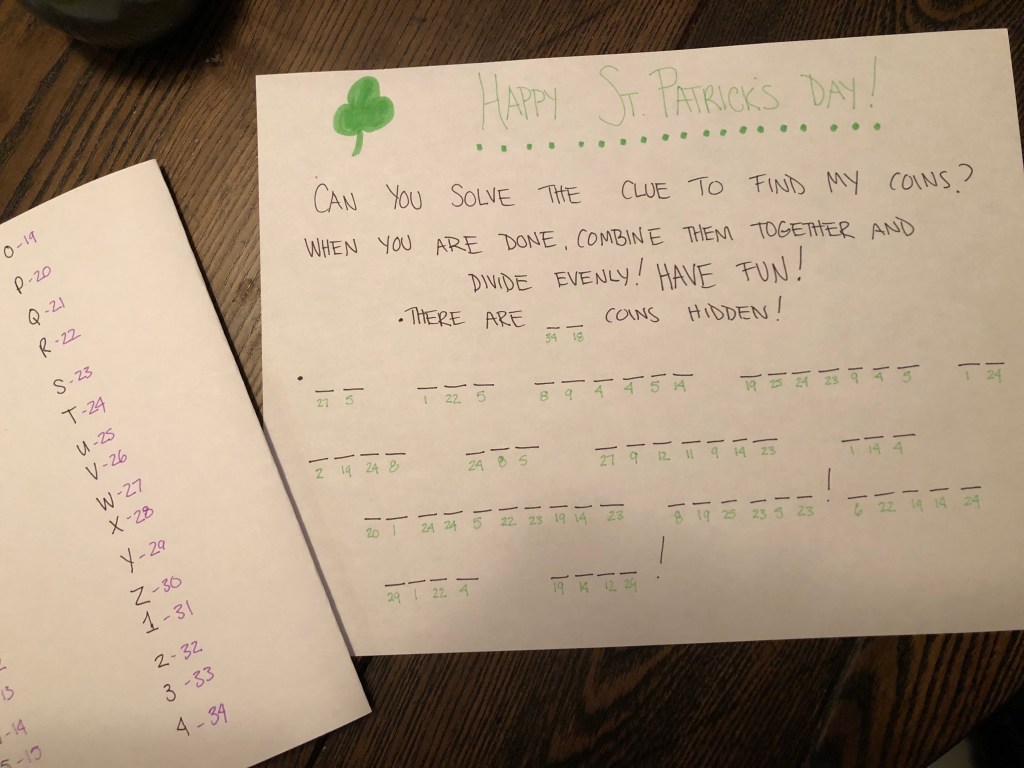 HAPPY ST. PATRICK'S DAY!
CAN YOU SOLVE THE CLUE TO FIND MY COINS?
WHEN YOU ARE DONE, COMBINE THEM TOGETHER AND
DIVIDE EVENLY! HAVE FUN!
• THERE ARE _ _ COINS HIDDEN!
34 18
• _ _ _ _ _ _ _ _ _ _ _ _ _ _ _ _ _ _ _ _
27 5 1 22 5 8 9 4 4 5 14 19 25 24 23 9 4 5 1 24
_ _ _ _ _ _ _ _ _ _ _ _ _ _ _ _ _
2 19 24 8 24 8 5 27 9 12 11 9 14 23 1 14 4
_ _ _ _ _ _ _ _ _ _ _ _ _ _ _ _ ! _ _ _ _ _
20 1 24 24 5 22 23 19 14 23 8 19 25 23 5 23 6 22 19 14 24
_ _ _ _ _ _ _ _ !
29 1 22 4 19 14 12 29
O-19
P-20
Q-21
R-22
S-23
T-24
U-25
V-26
W-27
X-28
Y-29
Z-30
1-31
2-32
3-33
4-34
13
-14
-15